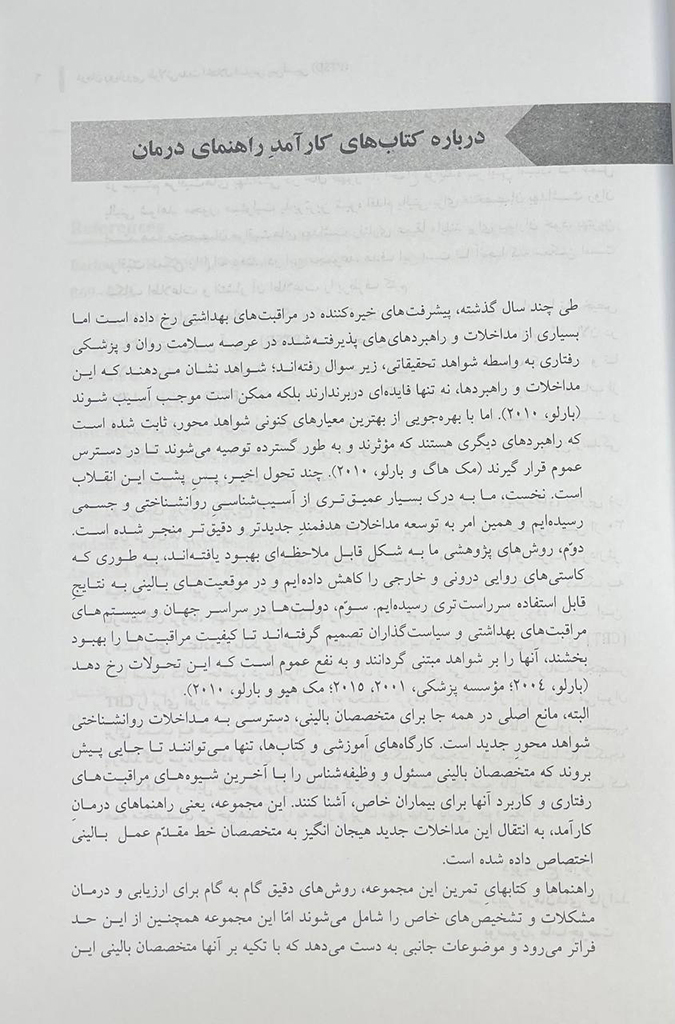 درباره کتاب‌های کارآمدِ راهنمای درمان
طی چند سال گذشته، پیشرفت‌های خیره‌کننده در مراقبت‌های بهداشتی رخ داده است اما
بسیاری از مداخلات و راهبردهای‌های پذیرفته‌شده در عرصه سلامت روان و پزشکی
رفتاری به واسطه شواهد تحقیقاتی، زیر سوال رفته‌اند؛ شواهد نشان می‌دهند که این
مداخلات و راهبردها، نه تنها فایده‌ای دربرندارند بلکه ممکن است موجب آسیب شوند
(بارلو، ۲۰۱۰). اما با بهره‌جویی از بهترین معیارهای کنونی شواهد محور، ثابت شده است
که راهبردهای دیگری هستند که مؤثرند و به طور گسترده توصیه می‌شوند تا در دسترس
عموم قرار گیرند (مک هاگ و بارلو، ۲۰۱۰). چند تحول اخیر، پسِ پشت این انقلاب
است. نخست، ما به درک بسیار عمیق‌تری از آسیب‌شناسیِ روانشناختی و جسمی
رسیده‌ایم و همین امر به توسعه مداخلات هدفمندِ جدیدتر و دقیق‌تر منجر شده است.
دوّم، روش‌های پژوهشی ما به شکل قابل ملاحظه‌ای بهبود یافته‌اند، به طوری که
کاستی‌های روایی درونی و خارجی را کاهش داده‌ایم و در موقعیت‌های بالینی به نتایجِ
قابل استفاده سرراست‌تری رسیده‌ایم. سوّم، دولت‌ها در سراسر جهان و سیستم‌های
مراقبت‌های بهداشتی و سیاست‌گذاران تصمیم گرفته‌اند تا کیفیت مراقبت‌ها را بهبود
بخشند، آنها را بر شواهد مبتنی گردانند و به نفع عموم است که این تحولات رخ دهد
(بارلو، ۲۰۰۴؛ مؤسسه پزشکی، ۲۰۰۱، ۲۰۱۵؛ مک هیو و بارلو، ۲۰۱۰).
البته، مانع اصلی در همه جا برای متخصصان بالینی، دسترسی به مداخلات روانشناختی
شواهد محورِ جدید است. کارگاه‌های آموزشی و کتاب‌ها، تنها می‌توانند تا جایی پیش
بروند که متخصصان بالینی مسئول و وظیفه‌شناس را با آخرین شیوه‌های مراقبت‌های
رفتاری و کاربرد آنها برای بیماران خاص، آشنا کنند. این مجموعه، یعنی راهنماهای درمانِ
کارآمد، به انتقال این مداخلات جدید هیجان انگیز به متخصصان خط مقدّم عمل بالینی
اختصاص داده شده است.
راهنماها و کتابهایِ تمرین این مجموعه، روش‌های دقیق گام به گام برای ارزیابی و درمان
مشکلات و تشخیص‌های خاص را شامل می‌شوند امّا این مجموعه همچنین از این حد
فراتر می‌رود و موضوعات جانبی به دست می‌دهد که با تکیه بر آنها متخصصان بالینی این